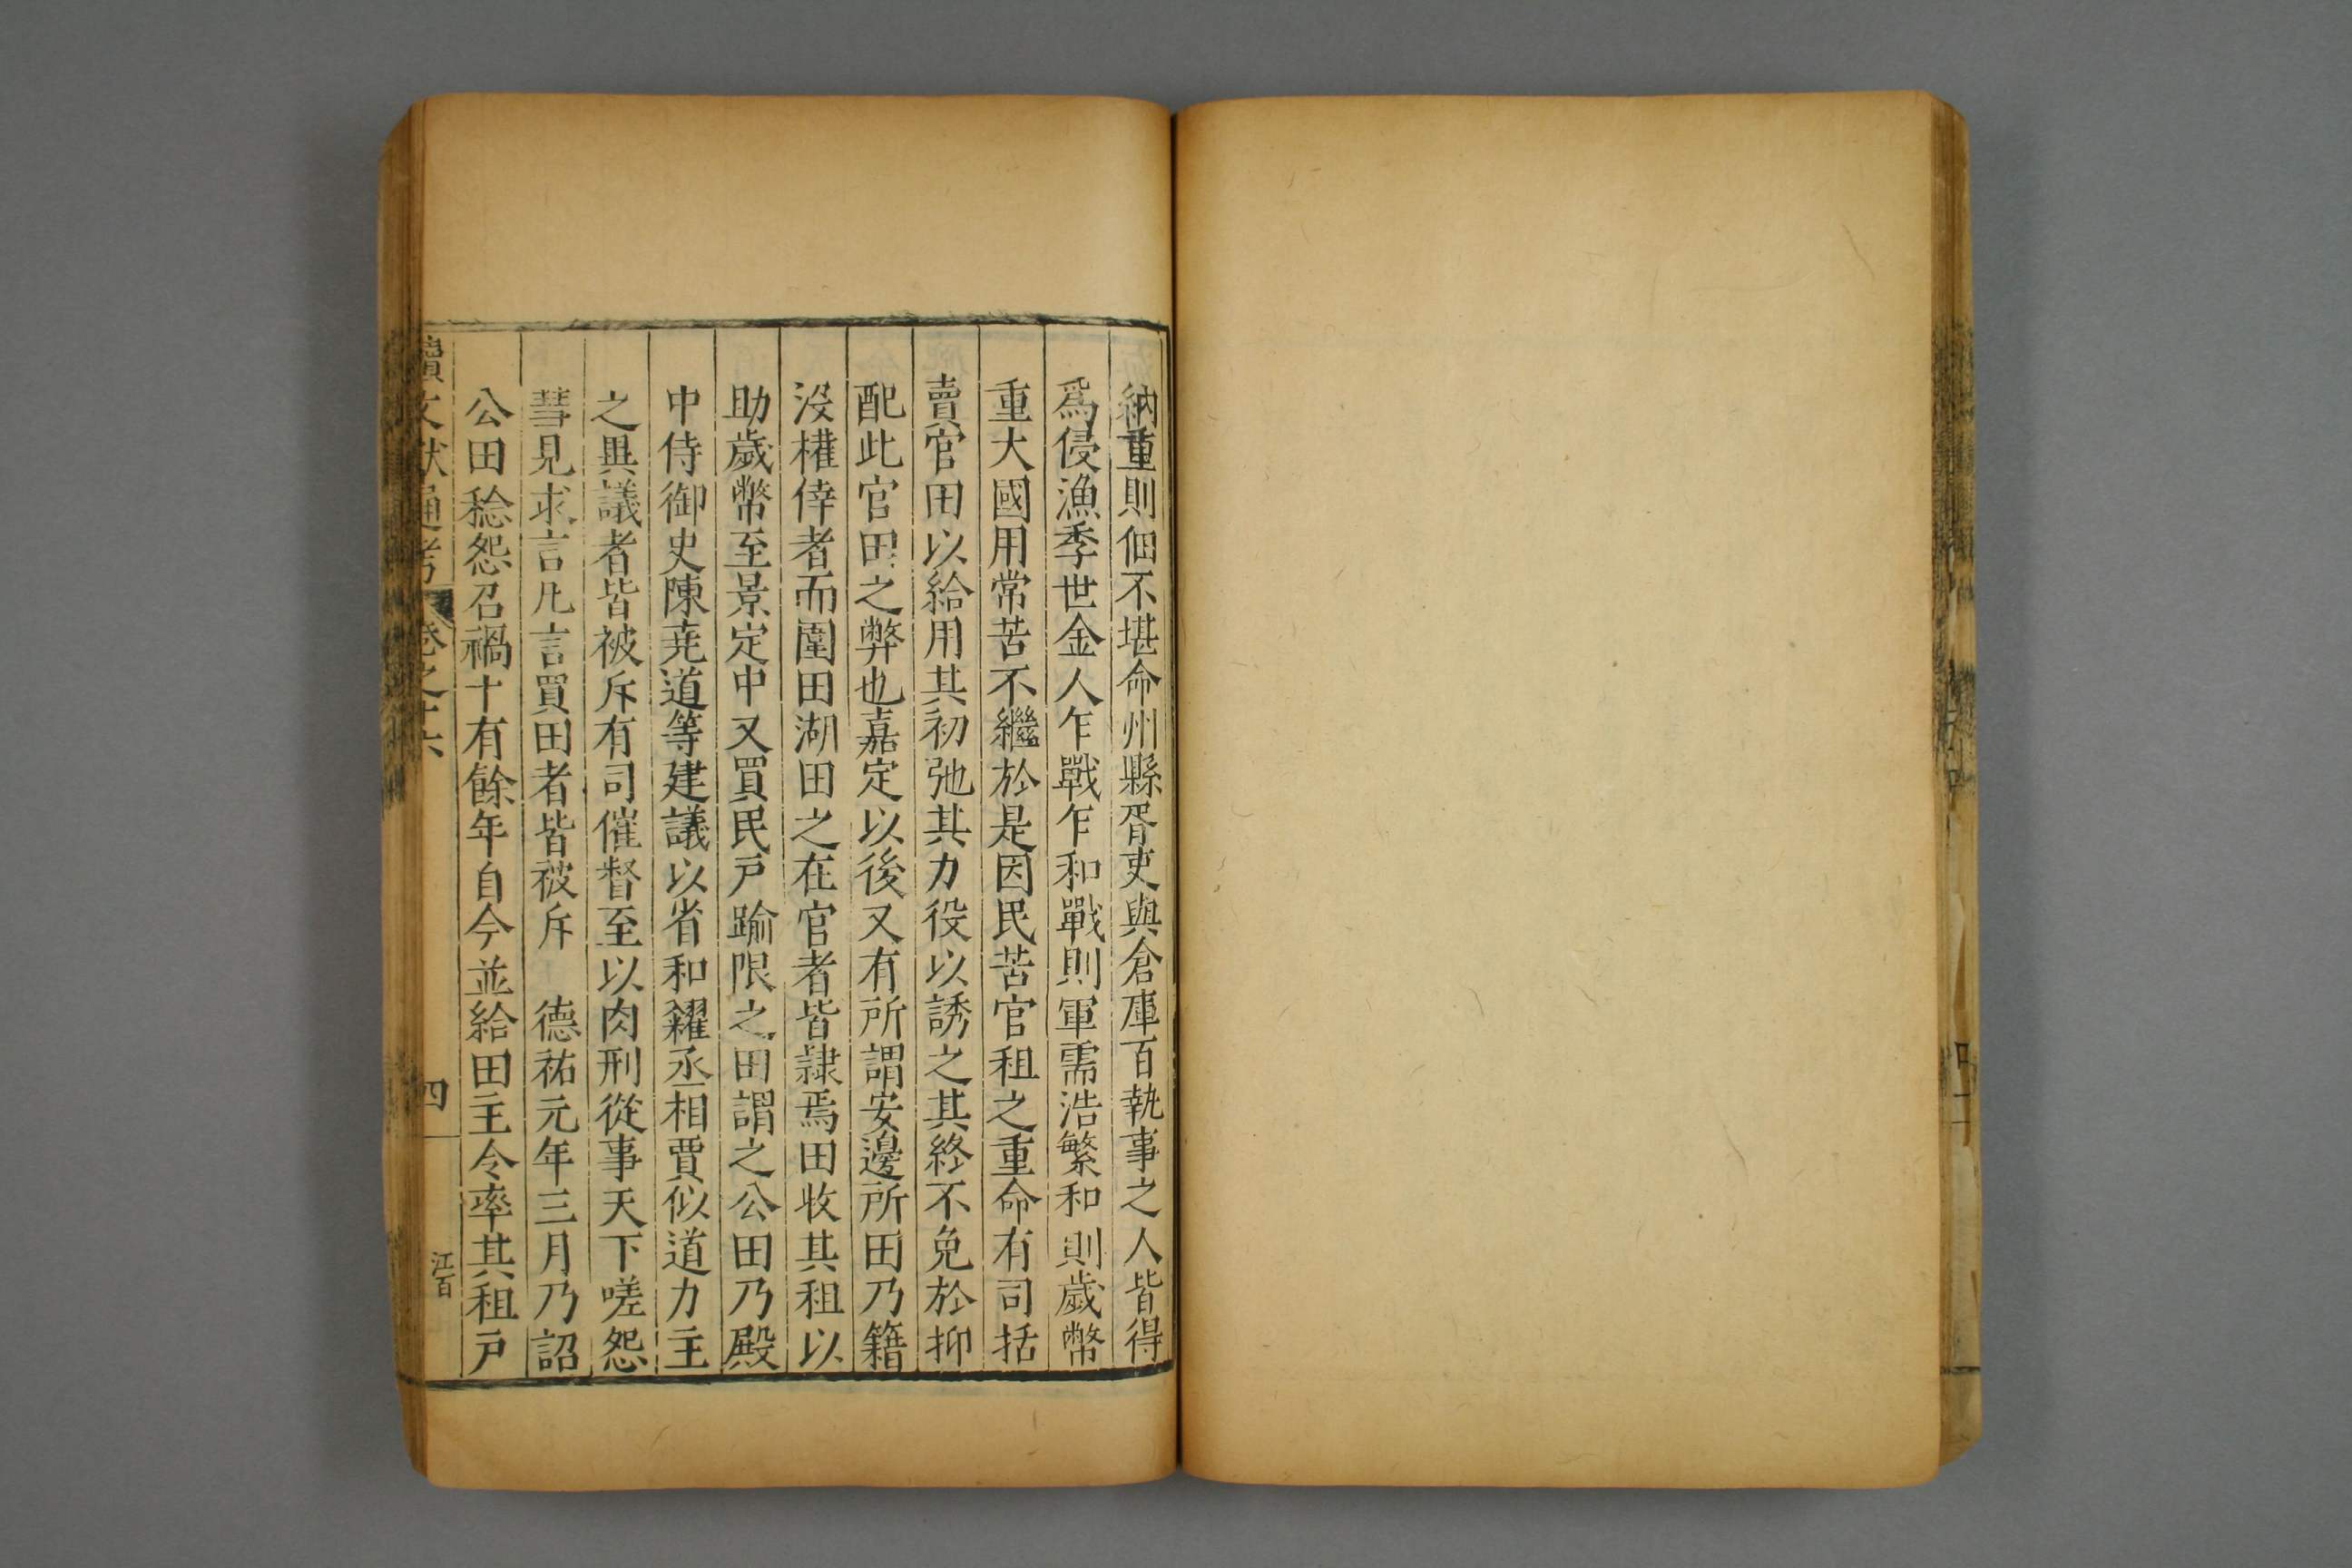 納重則佃不堪命州縣胥吏與倉庫百執事之人皆得
爲侵漁季世金人乍戰乍和戰則軍需浩繁和則歲幣
重大國用常苦不繼於是因民苦官租之重命有司括
賣官田以給用其初弛其力役以誘之其終不免於抑
配此官田之弊也嘉定以後又有所謂安邊所田乃籍
沒權倖者而圍田湖田之在官者皆隸焉田收其租以
助歲幣至景定中又買民戶踰限之田謂之公田乃殿
中侍御史陳堯道等建議以省和糴丞相賈似道力主
之異議者皆被斥有司催督至以肉刑從事天下嗟怨
彗見求言凡言買田者皆被斥　德祐元年三月乃詔
公田稔怨召禍十有餘年自今並給田主令率其租戶
續文獻通考　卷之十六　四　江百